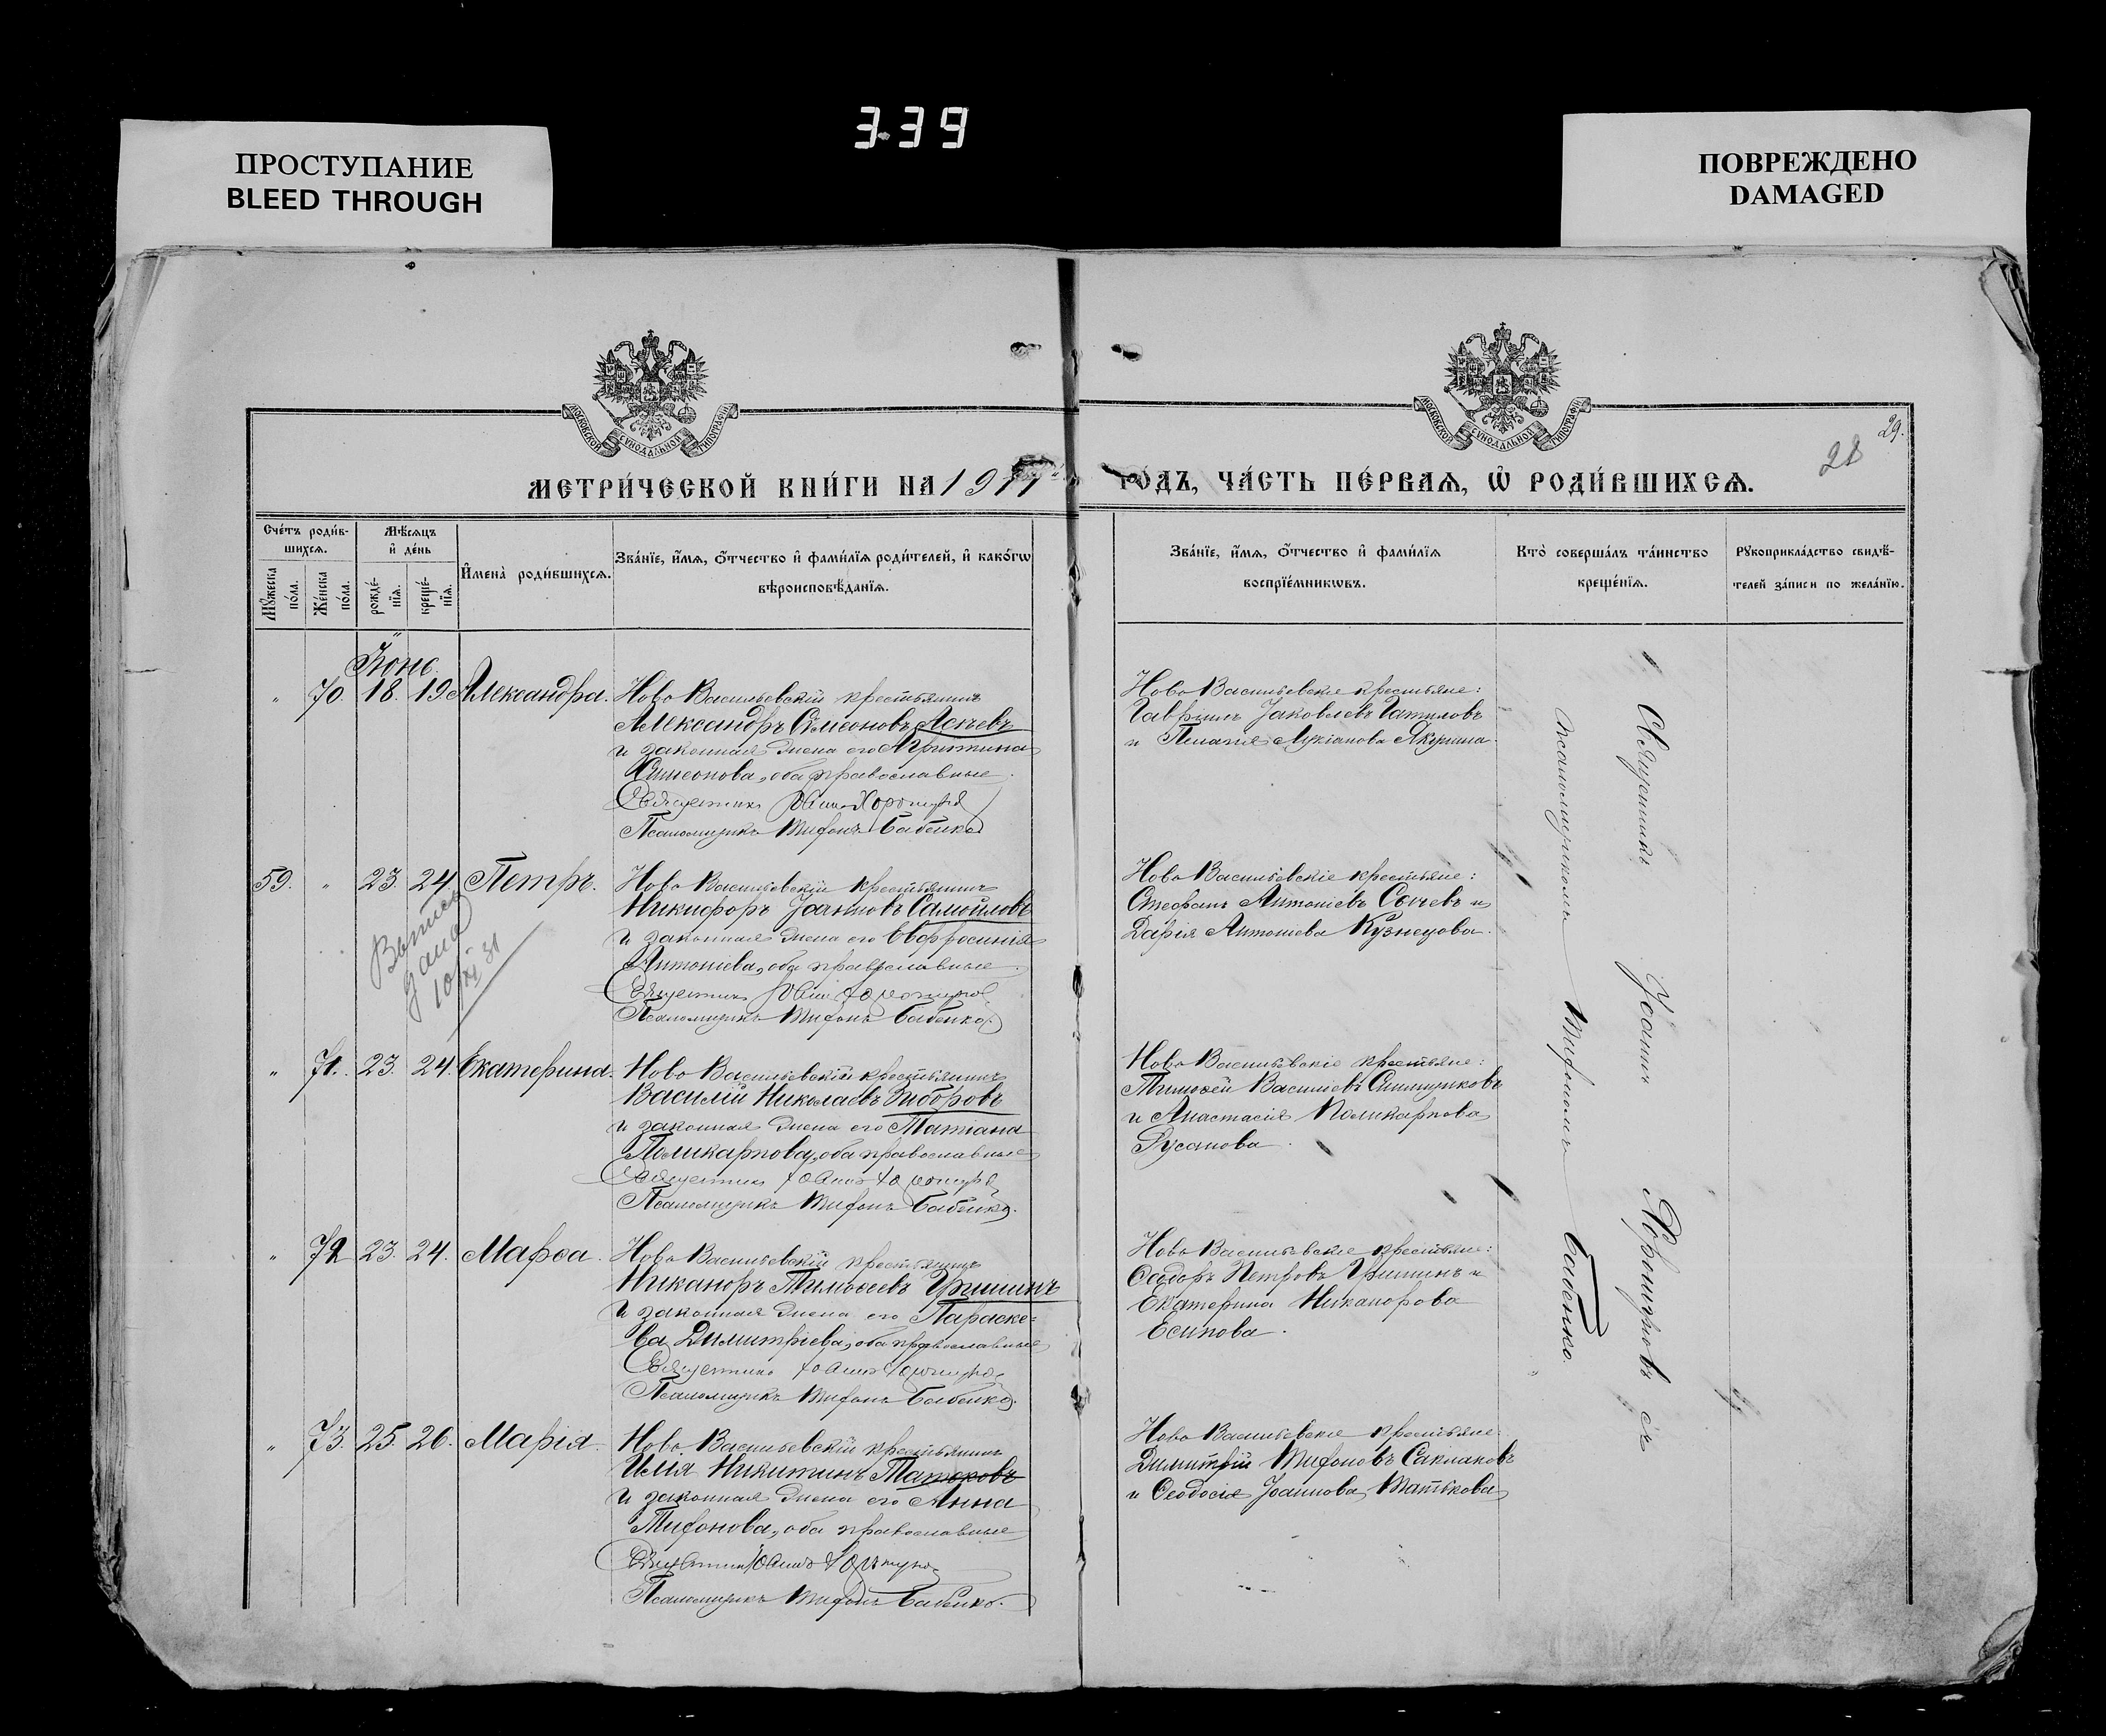 339
ПРОСТУПАНИЕ
BLEED THROUGH
ПОВРЕЖДЕНО
DAMAGED
МОСКОВСКОЙ СѴНОДАЛЬНОЙ ТИПОГРАФІИ
МОСКОВСКОЙ СѴНОДАЛЬНОЙ ТИПОГРАФІИ
29.
28
МЕТРИ́ЧЕСКОЙ КНИ́ГИ НА 1911 й
ГО́ДЪ, ЧА́СТЬ ПЕ́РВАѦ, Ѡ҆ РОДИ́ВШИХСѦ.
Сче́тъ роди́в-
шихсѧ.
Мꙋ́жеска по́ла.
Же́нска по́ла.
Мѣ́сѧцъ
и҆ де́нь
рожде́-
нїѧ.
креще́-
нїѧ.
И҆мена̀ роди́вшихсѧ.
Зва́нїе, и҆́мѧ, ѻ҆́тчество и҆ фами́лїѧ роди́телей, и҆ како́гѡ
вѣроисповѣ́данїѧ.
Зва́нїе, и҆́мѧ, ѻ҆́тчество и҆ фами́лїѧ
воспрїе́мникѡвъ.
Кто̀ соверша́лъ та́инство
креще́нїѧ.
Рꙋкоприкла́дство свидѣ́-
телей за́писи по жела́нїю.
Іюнь.
" 70. 18. 19. Александра.
Ново Васильевскій крестьянинъ
Александръ Сѵмеоновъ Асѣевъ
и законная жена его Агриппина
Симеонова, оба православные.
Священникъ Іоаннъ Хорошуновъ
Псаломщикъ Трифонъ Бабенко
Ново Васильевскіе крестьяне:
Гавріилъ Іаковлевъ Гатиловъ
и Пелагія Лукіанова Якунина.
59. " 23. 24. Петръ.
Выпись
дана
10/XI 31
Ново Васильевскій крестьянинъ
Никифоръ Іоанновъ Самойловъ
и законная жена его Евфросинія
Антоніева, оба православные.
Священникъ Іоаннъ Хорошуновъ
Псаломщикъ Трифонъ Бабенко.
Ново Васильевскіе крестьяне:
Стефанъ Антоніевъ Сычевъ и
Дарія Антоніева Кузнецова.
" 71. 23. 24. Екатерина.
Ново Васильевскій крестьянинъ
Василій Николаевъ Зиборовъ
и законная жена его Татіана
Поликарпова, оба православные
Священникъ Іоаннъ Хорошуновъ
Псаломщикъ Трифонъ Бабенко.
Ново Васильевскіе крестьяне:
Тимоѳей Василіевъ
и Анастасія Поликарпова
Русанова.
" 72 23. 24. Марѳа.
Ново Васильевскій крестьянинъ
Никаноръ Тимоѳеевъ Гришинъ
и законная жена его Параске=
ва Димитріева, оба православные
Священникъ Іоаннъ Хорошуновъ
Псаломщикъ Трифонъ Бабенко.
Ново Васильевскіе крестьяне:
Ѳеодоръ Петровъ Гришинъ и
Екатерина Никанорова
Есипова.
" 73. 25. 26. Марія.
Ново Васильевскій крестьянинъ
Илія Никитинъ
и законная жена его Анна
Трифонова, оба православные
Священникъ Іоаннъ Хорошуновъ
Псаломщикъ Трифонъ Бабенко.
Ново Васильевскіе крестьяне
Димитрій Трифоновъ Саклаковъ
и Ѳеодосія Іоаннова
Священникъ Іоаннъ Хорошуновъ съ
псаломщикомъ Трифономъ Бабенко.